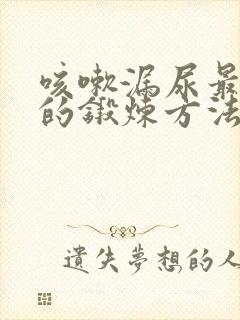 咳嗽漏尿最
的锻炼方法
遺失夢想的人